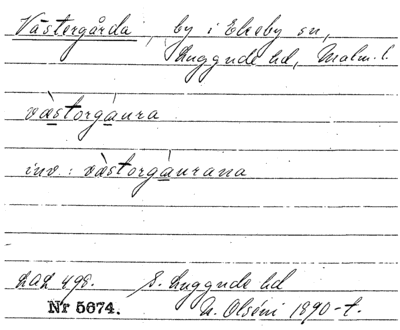 Västergårda, by i Ekeby sn,
Luggude hd, Malm. l.
västorgàura
inv.: västorgàurana
LAL 498. S. Luggude hd
Nr 5674. N. Olséni 1890-t.